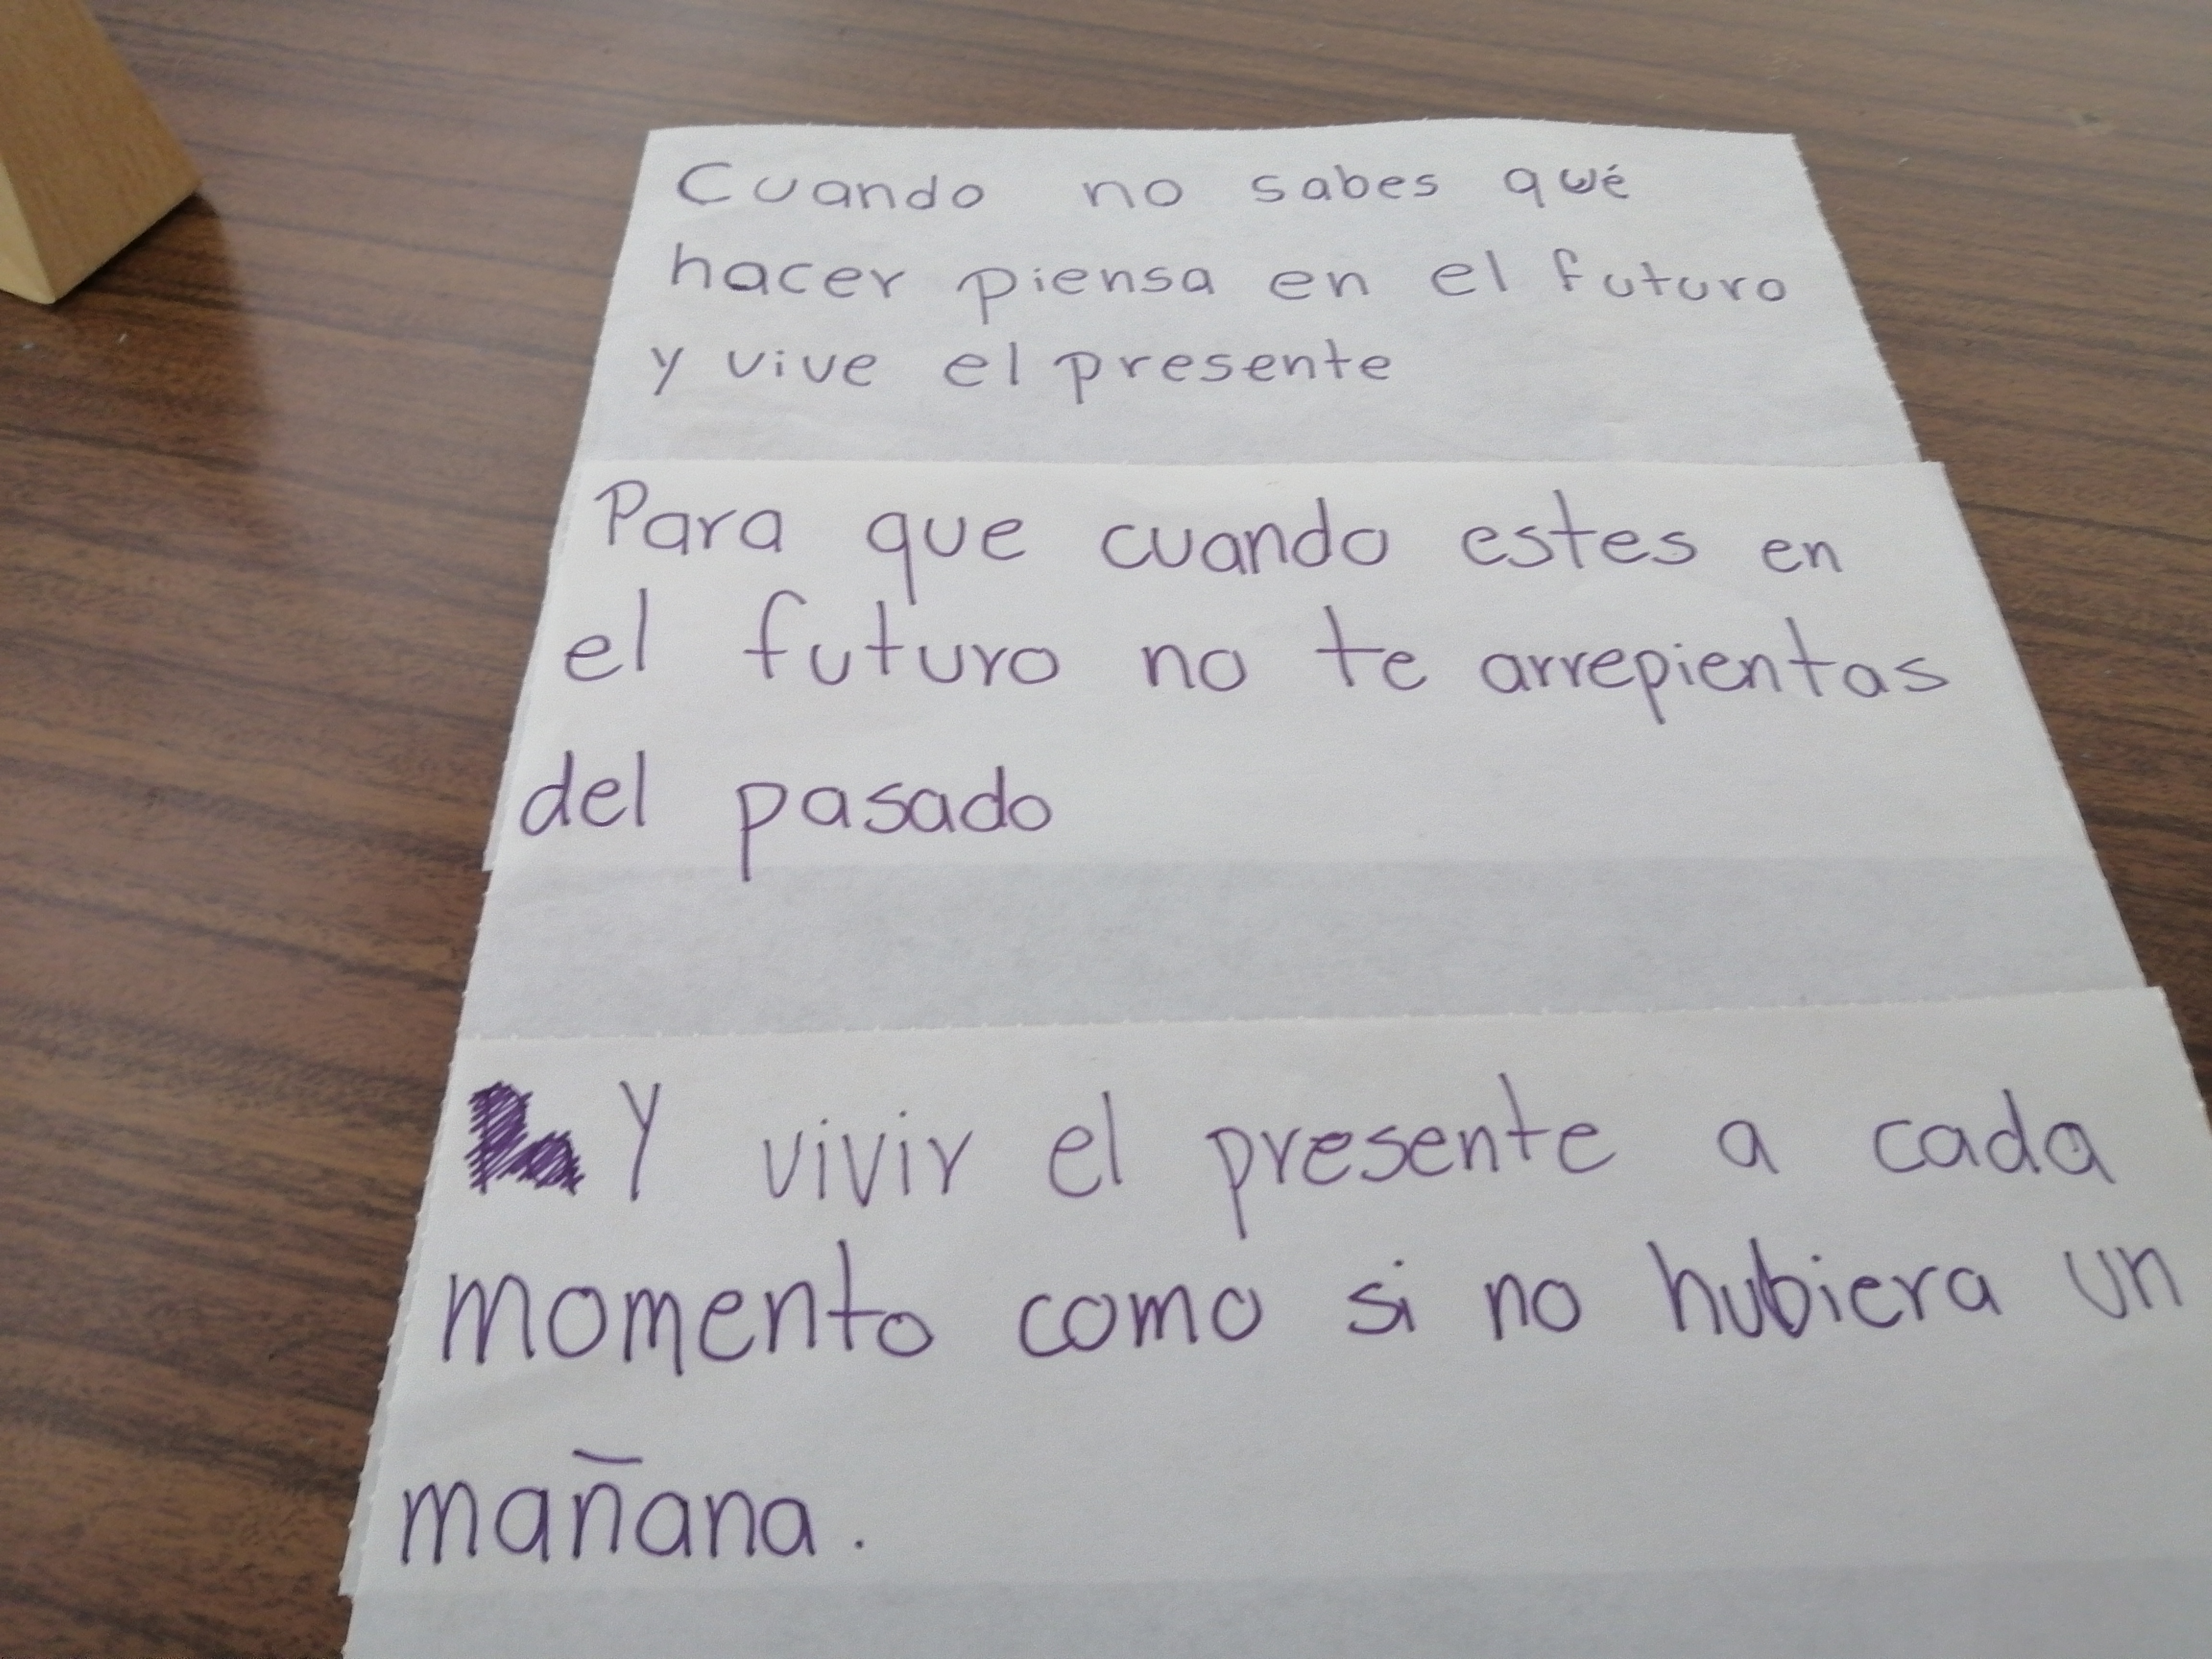 Cuando no sabes qué
hacer piensa en el futuro
y vive el presente
Para que cuando estes en
el futuro no te arrepientas
del pasado
Y vivir el presente a cada
momento como si no hubiera un
mañana.